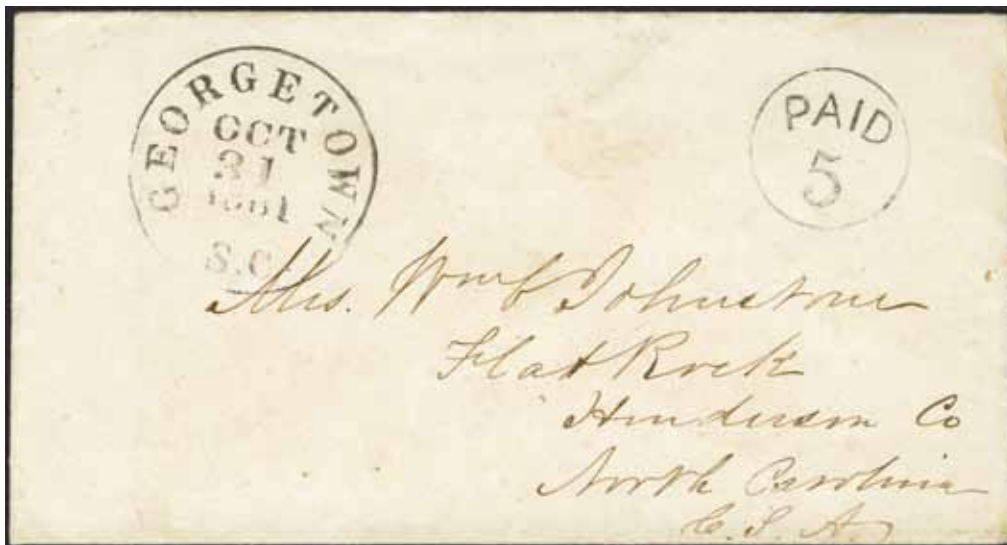 GEORGETOWN
OCT
31
1861
S.C.
PAID
5
Mrs. Wm C Johnstone
Flat Rock
Henderson Co
North Carolina
C.S.A.